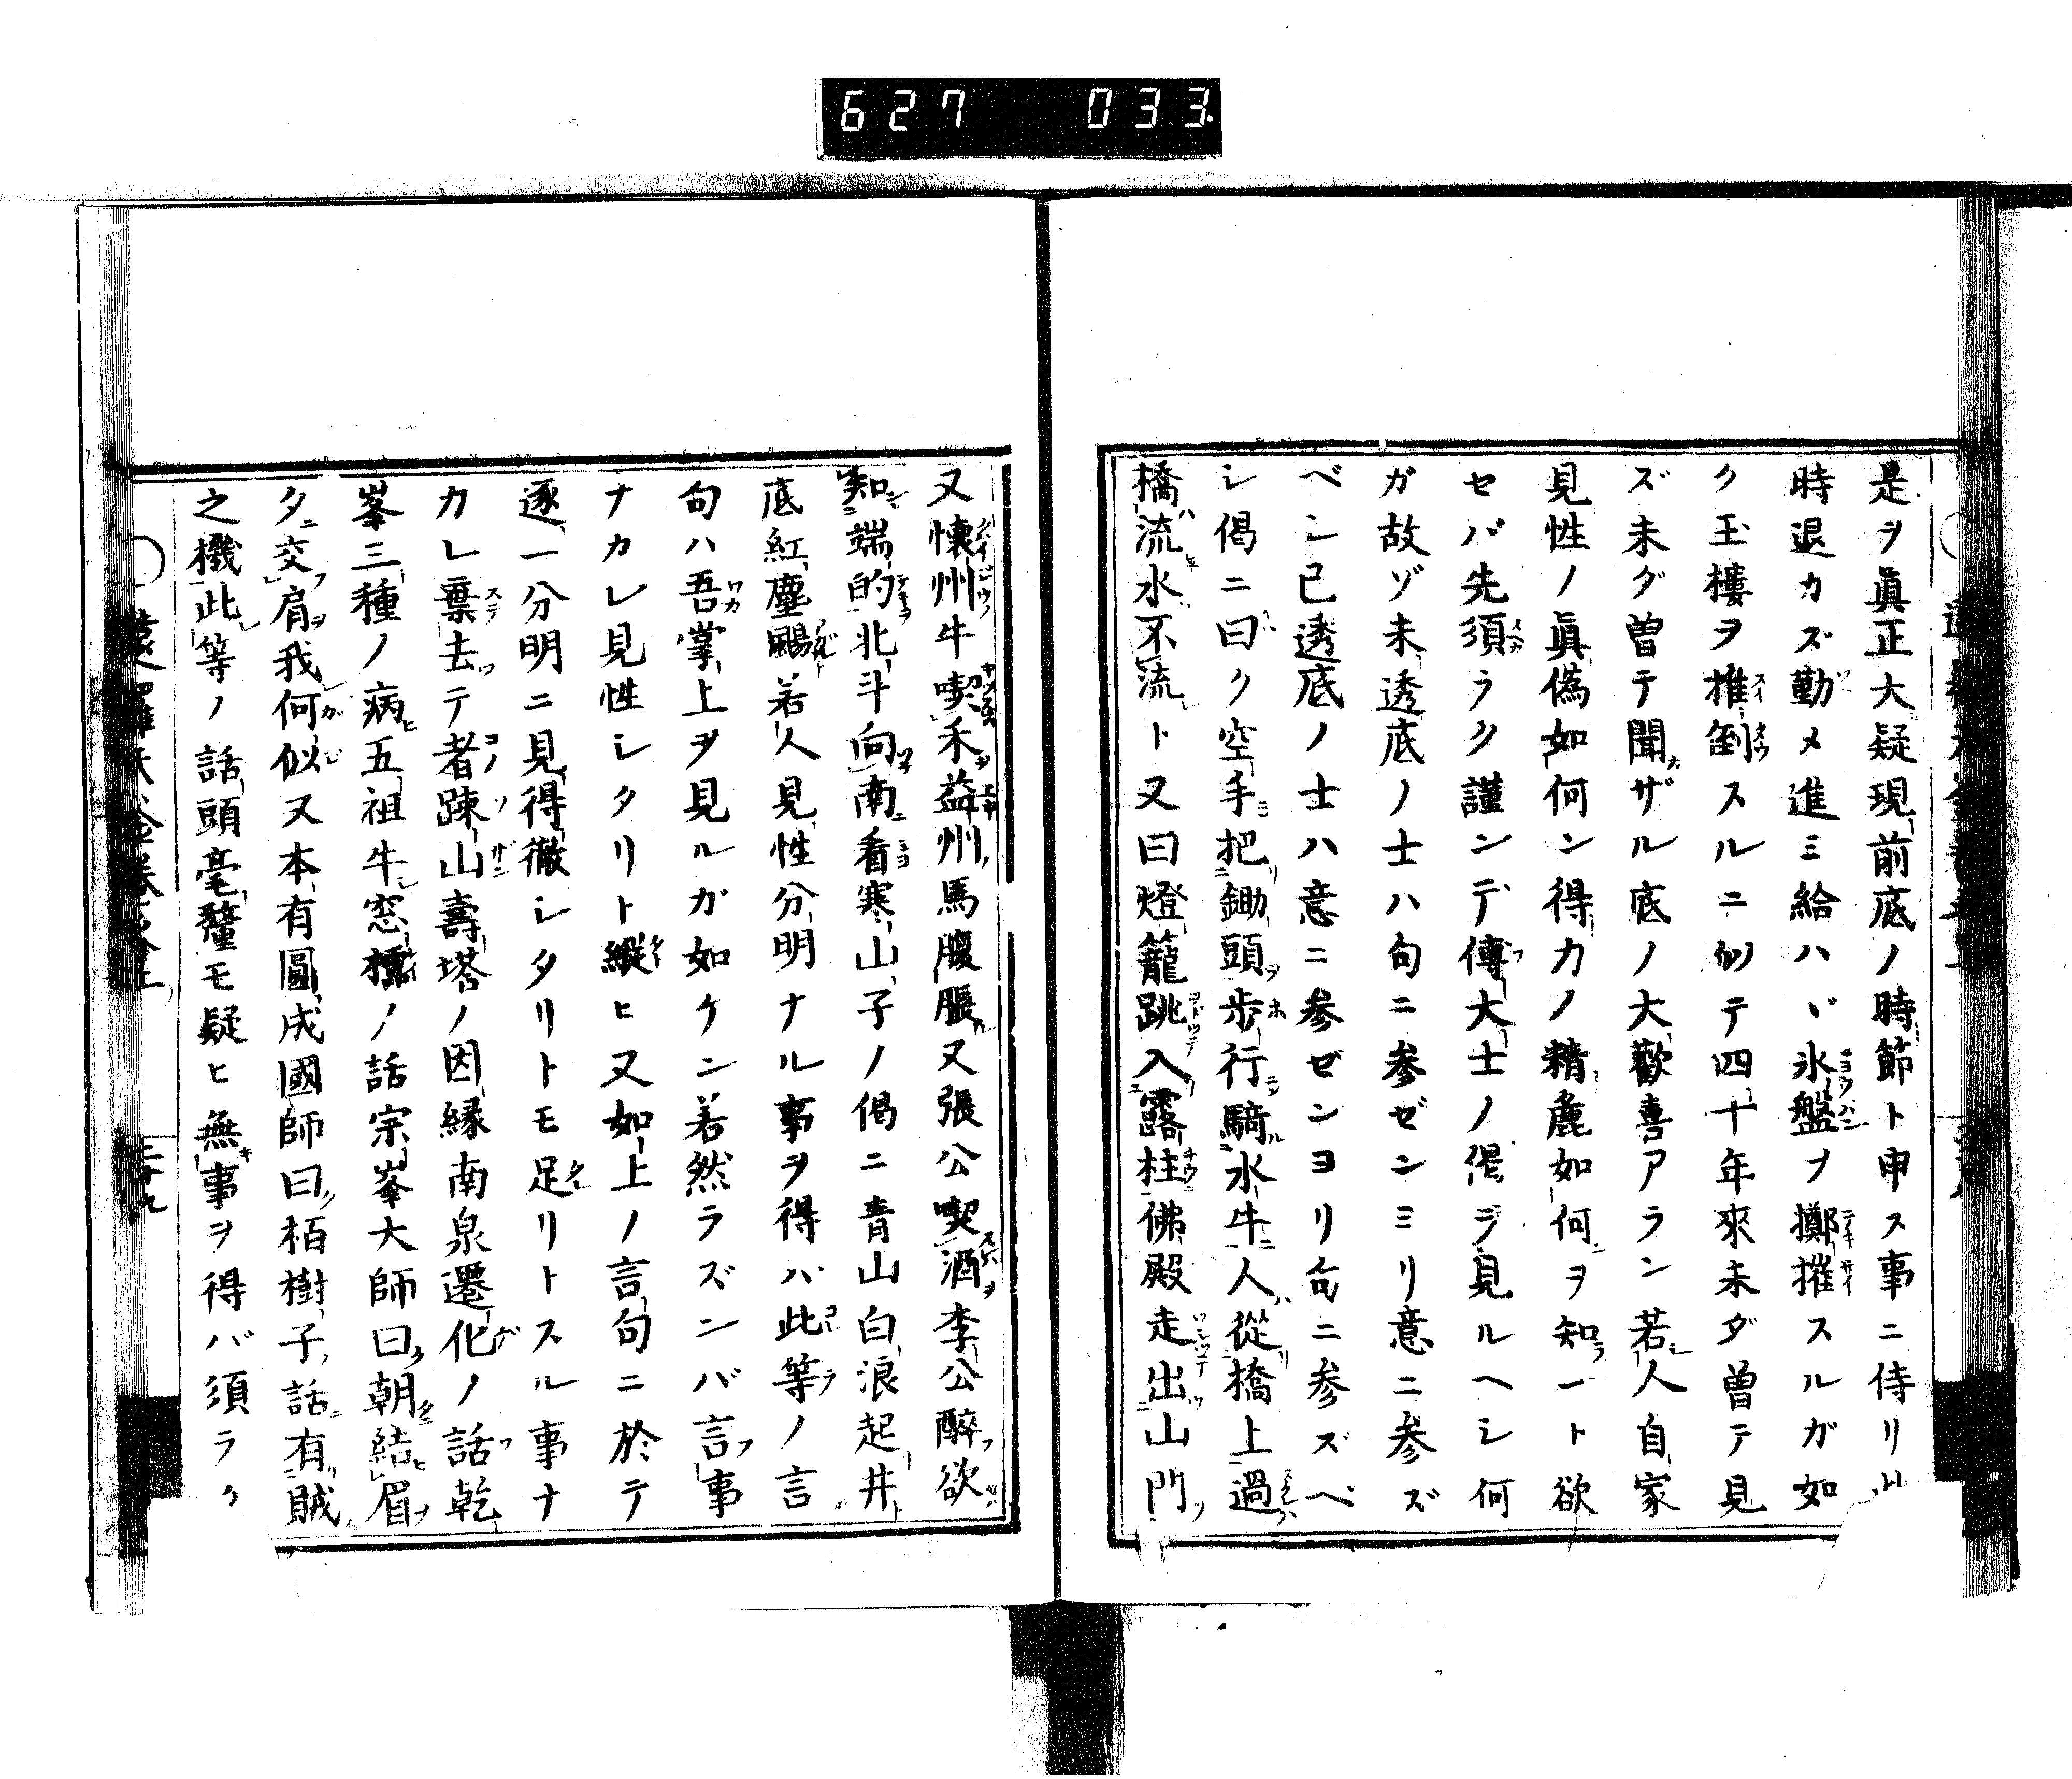 627 033
是ヲ眞正大疑現前底ノ時節ト申ス事ニ侍リ
時退カズ勤メ進ミ給ハヾ氷盤ヲ擲摧スルガ如
ク玉樓ヲ推倒スルニ似テ四十年來未ダ曽テ見
ズ未ダ曽テ聞ザル底ノ大歡喜アラン若人自家
見性ノ眞偽如何ン得力ノ精麁如何ヲ知ント欲
セバ先須ラク謹ンデ傳大士ノ偈ヲ見ルヘシ何
ガ故ゾ未透底ノ士ハ句ニ参ゼンミリ意ニ参ズ
ベシ已透底ノ士ハ意ニ参ゼンヨリ句ニ参ズベ
シ偈ニ曰ク空手把鋤頭歩行騎水牛人從橋上過
橋流水不流ト又曰燈籠跳入露柱佛殿走出山門
又懐州牛喫禾益州馬腹脹又張公喫酒李公醉欲
知端的北斗向南看寒山子ノ偈ニ青山白浪起井
底紅塵颺若人見性分明ナル事ヲ得バ此等ノ言
句ハ吾掌上ヲ見ルガ如ケン若然ラズンバ言事
ナカレ見性シタリト縦ヒ又如上ノ言句ニ於テ
逐一分明ニ見得徹シタリトモ足リトスル事ナ
カレ棄去テ者踈山壽塔ノ因縁南泉遷化ノ話乾
峯三種ノ病五祖牛窓櫺ノ話宗峯大師曰朝結眉
夕交肩我何似又本有圓成國師曰栢樹子話有賊
之機此等ノ話頭毫釐モ疑ヒ無事ヲ得バ須ラク